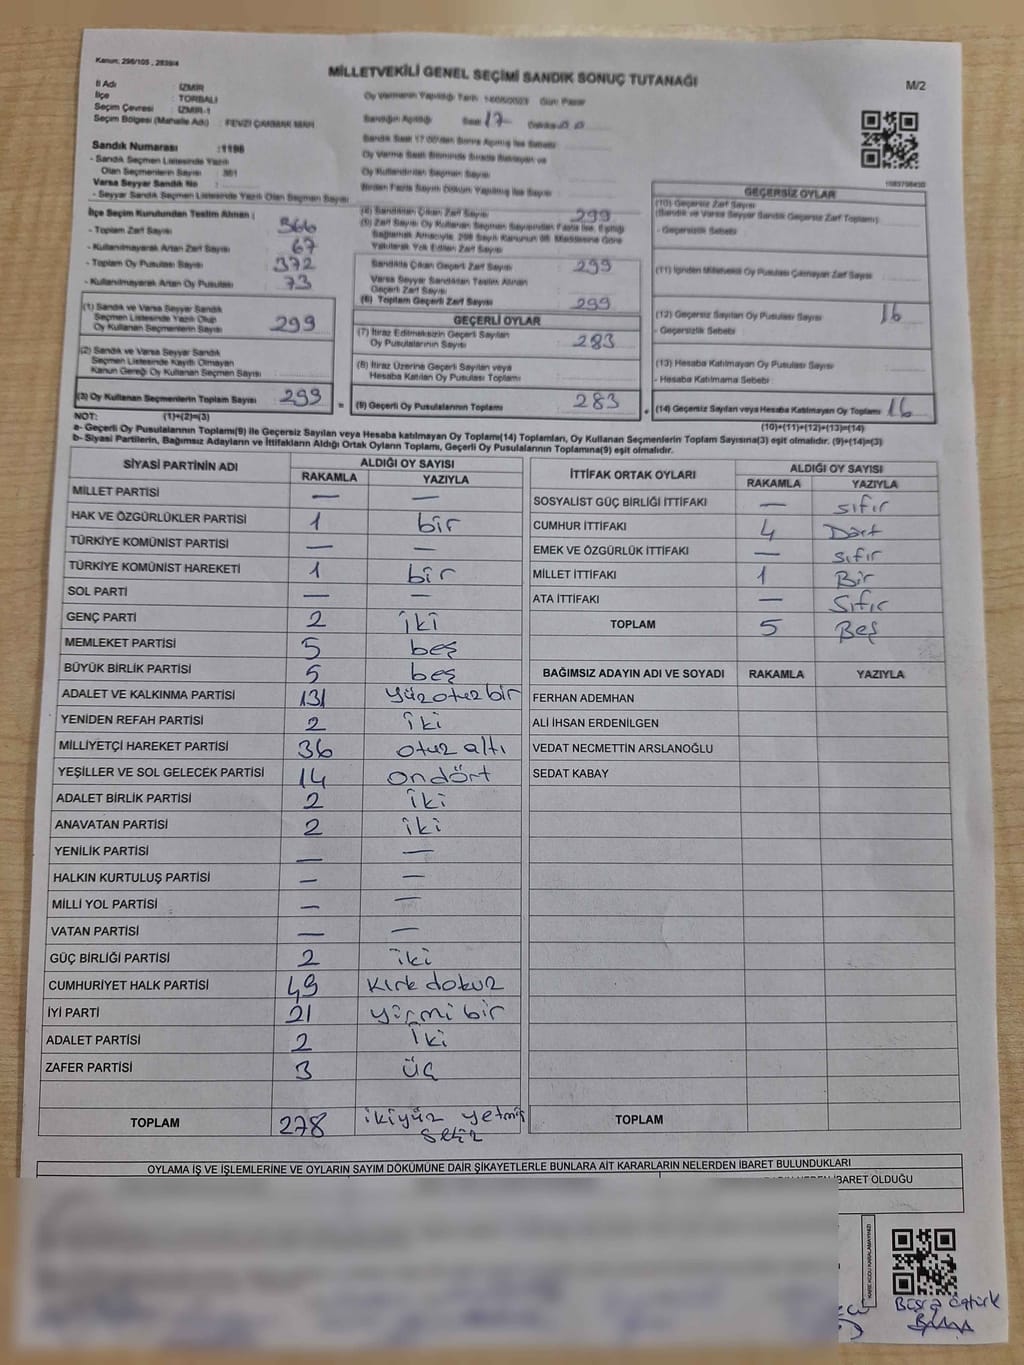 Kanun: 298/105 , 2839/4
MİLLETVEKİLİ GENEL SEÇİMİ SANDIK SONUÇ TUTANAĞI
M/2
İl Adı : İZMİR
İlçe : TORBALI
Seçim Çevresi : İZMİR-1
Seçim Bölgesi (Mahalle Adı) : FEVZİ ÇAKMAK MAH.
Oy Vermenin Yapıldığı Tarih: 14/05/2023 Gün: Pazar
Sandığın Açıldığı Saat 17 Dakika
Sandık Saat 17:00'den Sonra Açılmış İse Sebebi
Oy Verme Saati Bitiminde Sırada Bekleyen ve
Oy Kullandırılan Seçmen Sayısı
Birden Fazla Sayım Döküm Yapılmış İse Sayısı
Sandık Numarası : 1196
- Sandık Seçmen Listesinde Yazılı
Olan Seçmenlerin Sayısı : 361
Varsa Seyyar Sandık No :
- Seyyar Sandık Seçmen Listesinde Yazılı Olan Seçmen Sayısı
İlçe Seçim Kurulundan Teslim Alınan :
- Toplam Zarf Sayısı 366
- Kullanılmayarak Artan Zarf Sayısı 67
- Toplam Oy Pusulası Sayısı 372
- Kullanılmayarak Artan Oy Pusulası 73
(1) Sandık ve Varsa Seyyar Sandık
Seçmen Listesinde Yazılı Olup
Oy Kullanan Seçmenlerin Sayısı 299
(2) Sandık ve Varsa Seyyar Sandık
Seçmen Listesinde Kayıtlı Olmayan
Kanun Gereği Oy Kullanan Seçmen Sayısı
(3) Oy Kullanan Seçmenlerin Toplam Sayısı 299
(4) Sandıktan Çıkan Zarf Sayısı 299
(5) Zarf Sayısı Oy Kullanan Seçmen Sayısından Fazla İse, Eşitliği
Sağlamak Amacıyla, 298 Sayılı Kanunun 98. Maddesine Göre
Yakılarak Yok Edilen Zarf Sayısı
Sandıkta Çıkan Geçerli Zarf Sayısı 299
Varsa Seyyar Sandıktan Teslim Alınan
Geçerli Zarf Sayısı
(6) Toplam Geçerli Zarf Sayısı 299
GEÇERLİ OYLAR
(7) İtiraz Edilmeksizin Geçerli Sayılan
Oy Pusulalarının Sayısı 283
(8) İtiraz Üzerine Geçerli Sayılan veya
Hesaba Katılan Oy Pusulası Toplamı
= (9) Geçerli Oy Pusulalarının Toplamı 283
GEÇERSİZ OYLAR
(10) Geçersiz Zarf Sayısı
(Sandık ve Varsa Seyyar Sandık Geçersiz Zarf Toplamı)
- Geçersizlik Sebebi :
(11) İçinden Milletvekili Oy Pusulası Çıkmayan Zarf Sayısı
(12) Geçersiz Sayılan Oy Pusulası Sayısı 16
- Geçersizlik Sebebi :
(13) Hesaba Katılmayan Oy Pusulası Sayısı :
- Hesaba Katılmama Sebebi :
+ (14) Geçersiz Sayılan veya Hesaba Katılmayan Oy Toplamı 16
NOT: (1)+(2)=(3) (10)+(11)+(12)+(13)=(14)
a- Geçerli Oy Pusulalarının Toplamı(9) ile Geçersiz Sayılan veya Hesaba katılmayan Oy Toplamı(14) Toplamları, Oy Kullanan Seçmenlerin Toplam Sayısına(3) eşit olmalıdır. (9)+(14)=(3)
b- Siyasi Partilerin, Bağımsız Adayların ve İttifakların Aldığı Ortak Oyların Toplamı, Geçerli Oy Pusulalarının Toplamına(9) eşit olmalıdır.
SİYASİ PARTİNİN ADI ALDIĞI OY SAYISI
RAKAMLA YAZIYLA
MİLLET PARTİSİ — —
HAK VE ÖZGÜRLÜKLER PARTİSİ 1 bir
TÜRKİYE KOMÜNİST PARTİSİ — —
TÜRKİYE KOMÜNİST HAREKETİ 1 bir
SOL PARTİ — —
GENÇ PARTİ 2 iki
MEMLEKET PARTİSİ 5 beş
BÜYÜK BİRLİK PARTİSİ 5 beş
ADALET VE KALKINMA PARTİSİ 131 yüzotuzbir
YENİDEN REFAH PARTİSİ 2 iki
MİLLİYETÇİ HAREKET PARTİSİ 36 otuz altı
YEŞİLLER VE SOL GELECEK PARTİSİ 14 ondört
ADALET BİRLİK PARTİSİ 2 iki
ANAVATAN PARTİSİ 2 iki
YENİLİK PARTİSİ — —
HALKIN KURTULUŞ PARTİSİ — —
MİLLİ YOL PARTİSİ — —
VATAN PARTİSİ — —
GÜÇ BİRLİĞİ PARTİSİ 2 iki
CUMHURİYET HALK PARTİSİ 49 kırk dokuz
İYİ PARTİ 21 yirmi bir
ADALET PARTİSİ 2 iki
ZAFER PARTİSİ 3 üç
TOPLAM 278 ikiyüz yetmiş
sekiz
İTTİFAK ORTAK OYLARI ALDIĞI OY SAYISI
RAKAMLA YAZIYLA
SOSYALİST GÜÇ BİRLİĞİ İTTİFAKI — sıfır
CUMHUR İTTİFAKI 4 Dört
EMEK VE ÖZGÜRLÜK İTTİFAKI — sıfır
MİLLET İTTİFAKI 1 Bir
ATA İTTİFAKI — Sıfır
TOPLAM 5 Beş
BAĞIMSIZ ADAYIN ADI VE SOYADI RAKAMLA YAZIYLA
FERHAN ADEMHAN
ALİ İHSAN ERDENİLGEN
VEDAT NECMETTİN ARSLANOĞLU
SEDAT KABAY
TOPLAM
OYLAMA İŞ VE İŞLEMLERİNE VE OYLARIN SAYIM DÖKÜMÜNE DAİR ŞİKAYETLERLE BUNLARA AİT KARARLARIN NELERDEN İBARET BULUNDUKLARI
İBARET OLDUĞU
KARE KODU KARALAMAYINIZ!
Büşra Öztürk